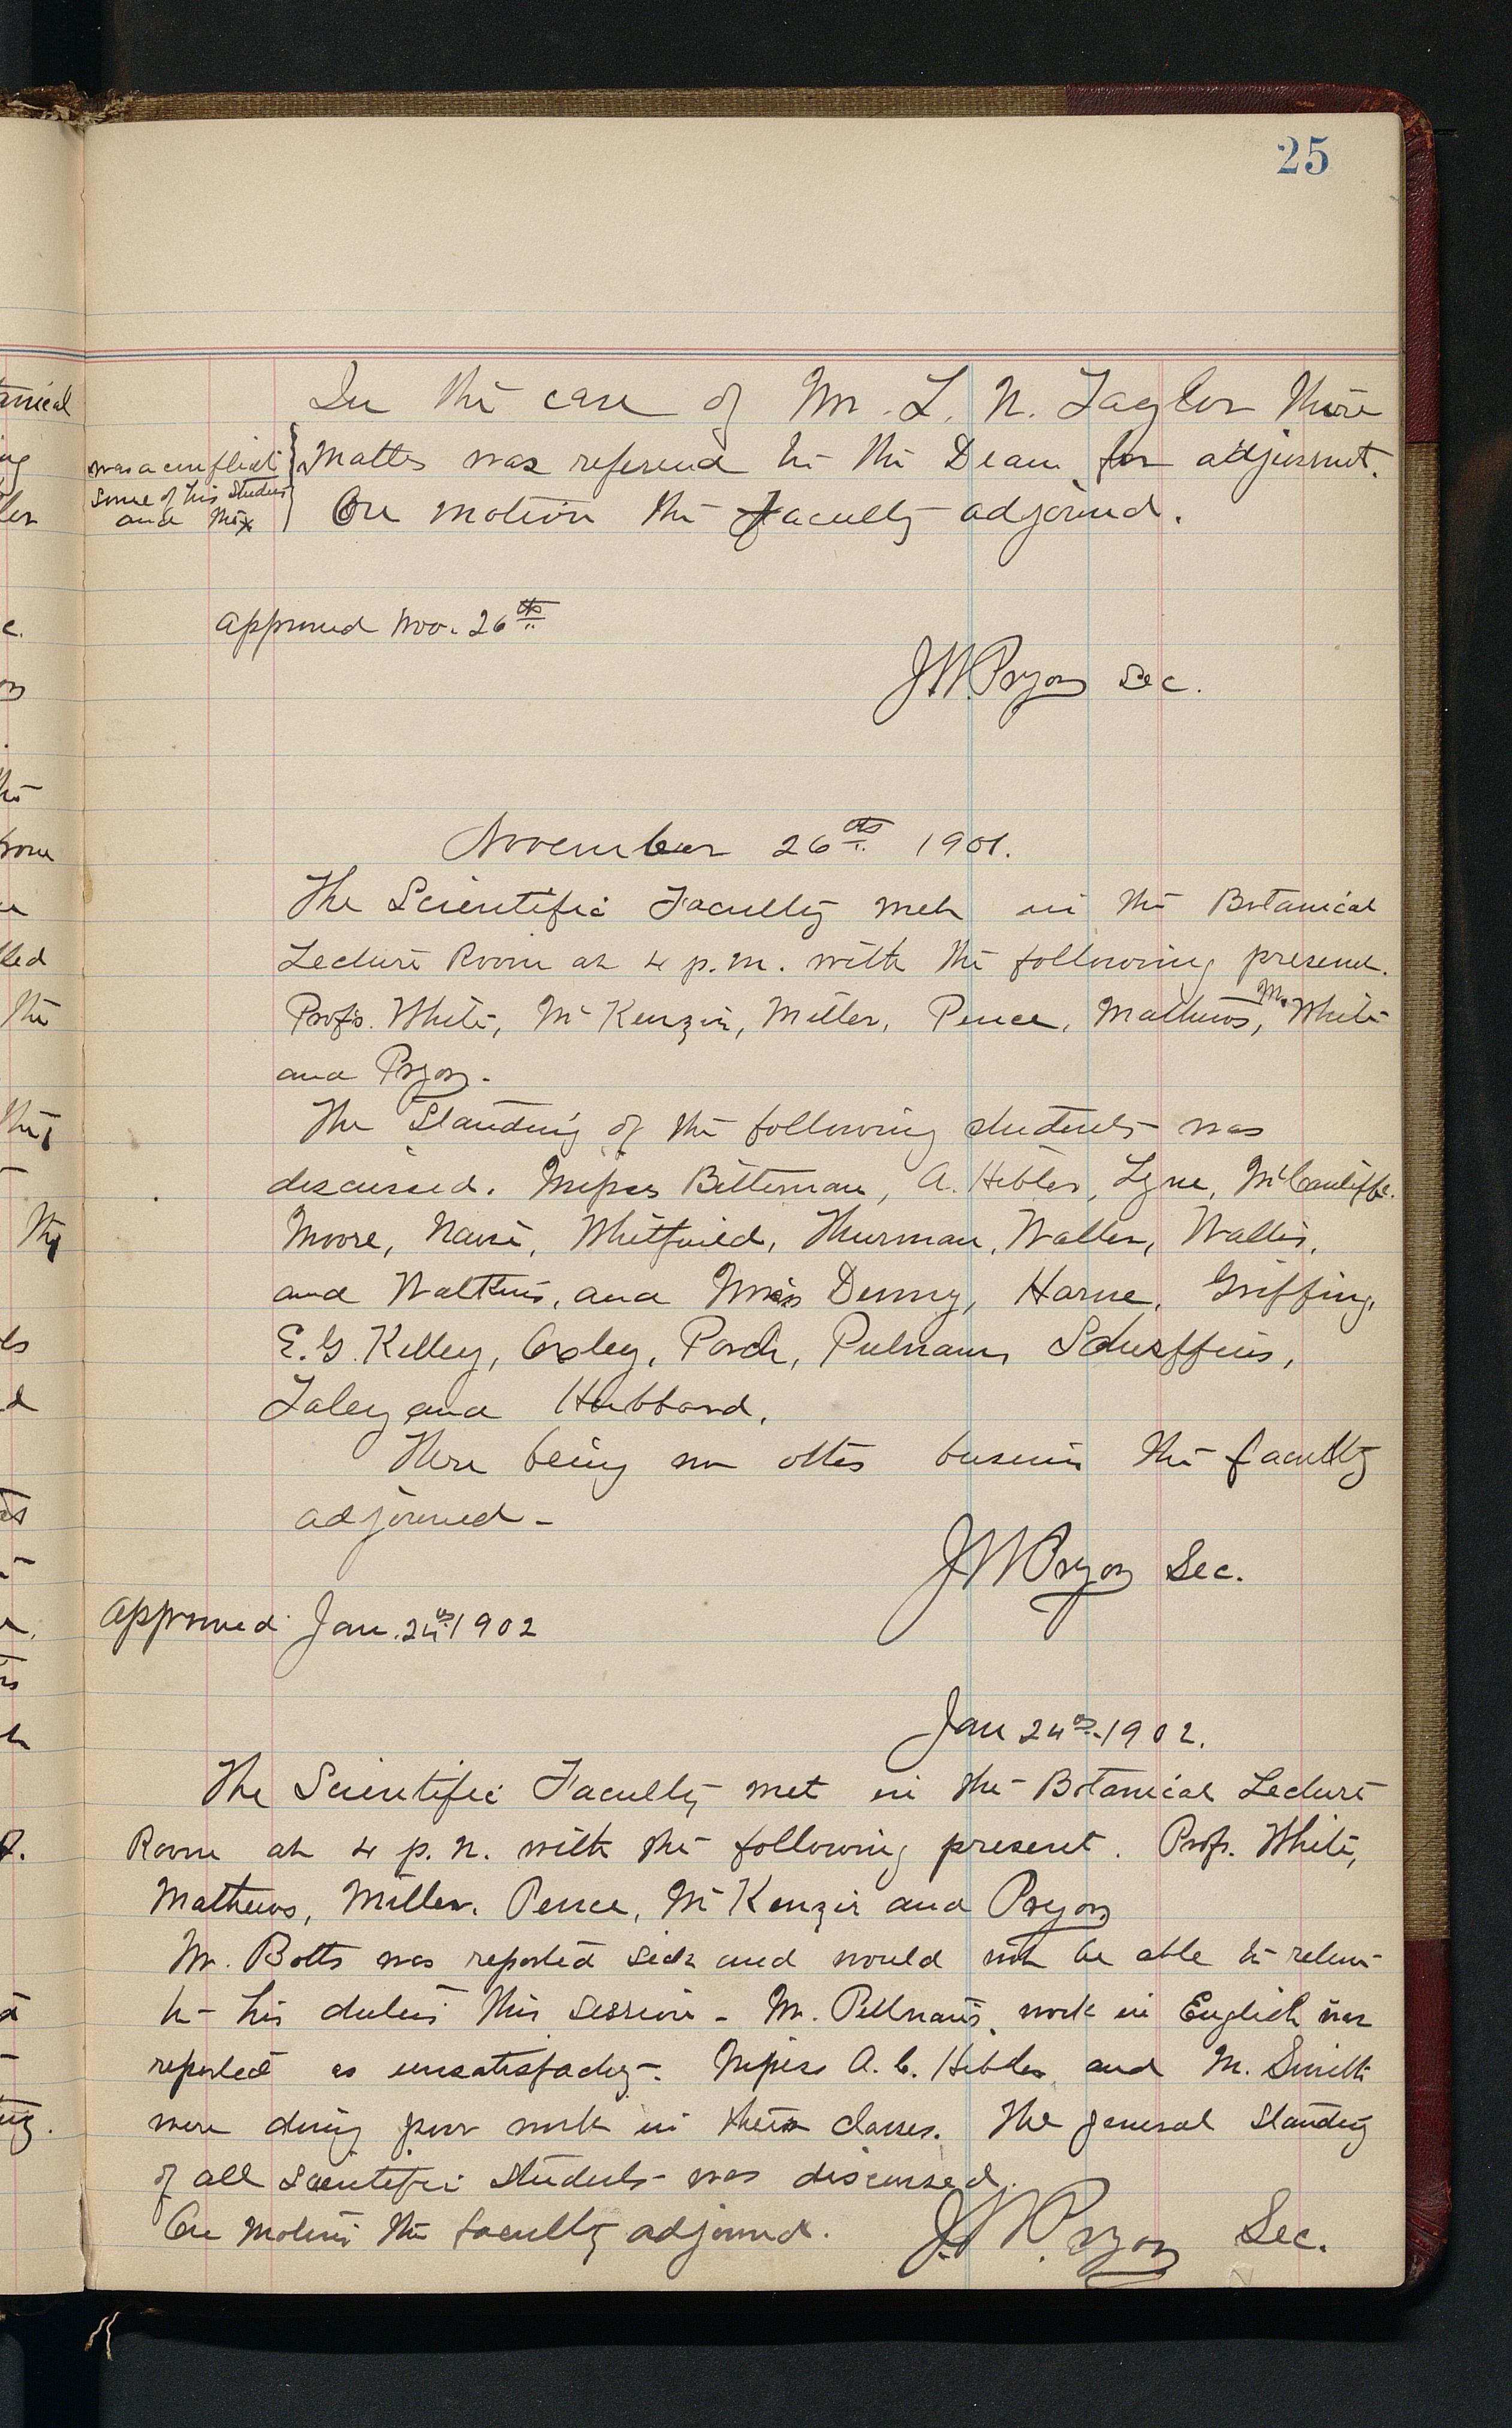 25
In the case of Mr. L. N. Taylor there
was a conflict
some of his studies
and the x
Matter was refered to the Dean for adjusmnt.
On motion the Faculty adjorned.
Approved Nov. 26th
J W Pryor Sec.
November 26th 1901.
The Scientific Faculty met in the Botanical
Lecture Room at 4 p.m. with the following present.
Profs. White, McKenzie, Miller, Pence, Mathews, Mr. White
and Pryor.
The Standing of the following students was
discussed. Messrs Bitterman, A. Hibler, Lyne, McCauliffe.
Moore, Nave, Whitfield, Thurman, Waller, Wallis,
and Watkins, and Miss Denny, Harne, Griffing,
E. G. Kelley, Oxley, Porch, Pulnam, Scheffius,
Taley and Hubbard.
There being no other business the faculty
adjorned -
J W Pryor Sec.
Approved Jan. 24th 1902
Jan 24th 1902.
The Scientific Faculty met in the Botanical Lecture
Room at 4 p. m. with the following present. Prof. White,
Mathews, Miller, Pence, McKenzie and Pryor
Mr. Botts was reported sick and would not be able to return
to his duties this session - Mr. Pullnam's work in English was
reported as unsatisfactory - Messrs A. C. Hibler and M. Smith
were doing poor work in their classes. The general standing
of all scientific students was discussed.
On motion the faculty adjorned.
J W Pryor Sec.